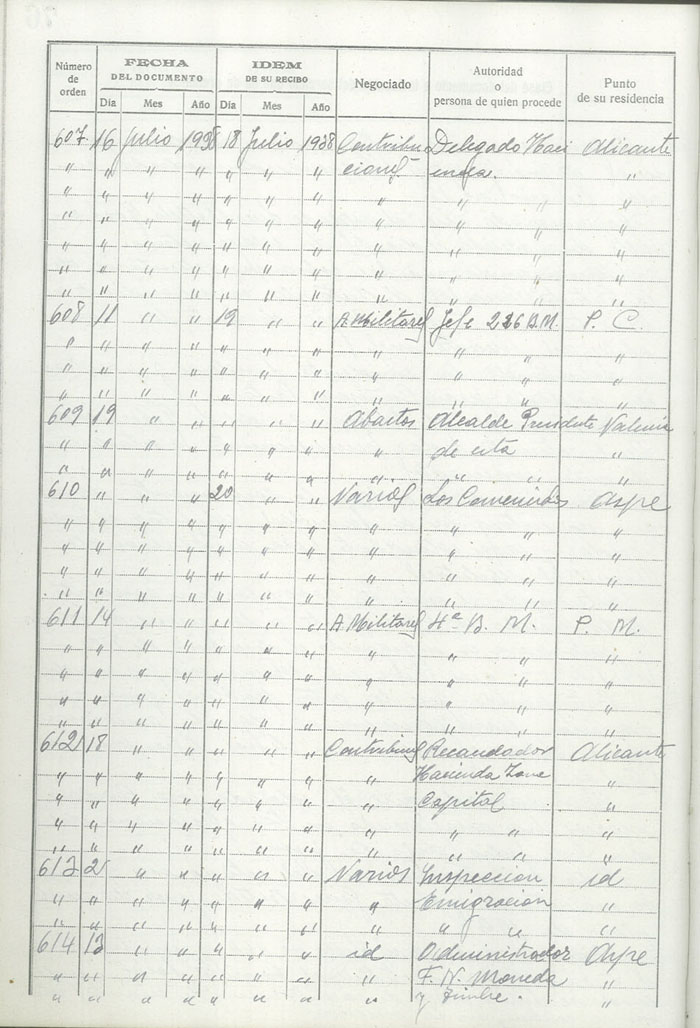 Número de orden FECHA DEL DOCUMENTO IDEM DE SU RECIBO Negociado Autoridad o persona de quien procede Punto de su residencia
Día Mes Año Día Mes Año
607 16 Julio 1938 18 Julio 1938 Contribu Delegado Haci Alicante
" " " " " " " ciones enda. "
" " " " " " " " " " "
" " " " " " " " " " "
" " " " " " " " " " "
" " " " " " " " " " "
" " " " " " " " " " "
608 11 " " 19 " " A Militares Jefe 226 B.M. P. C.
" " " " " " " " " " "
" " " " " " " " " " "
" " " " " " " " " "
609 19 " " " " " Abastos Alcalde Presidente Valencia
" " " " " " " " de esta "
" " " " " " " " " " "
610 " " " 20 " " Varios Los Convenidos Aspe
" " " " " " " " " " "
" " " " " " " " " " "
" " " " " " " " " " "
" " " " " " " " " "
611 14 " " " " " A Militares 4ª B. M. P. M.
" " " " " " " " " " "
" " " " " " " " " " "
" " " " " " " " " " "
" " " " " " " " " "
612 18 " " " " " Contribuns Recaudador Alicante
" " " " " " " " Hacienda Zona "
" " " " " " " " Capital "
" " " " " " " " " " "
" " " " " " " " " " "
613 2 " " " " " Varios Inspeccion id
" " " " " " " " Emigracion "
" " " " " " " " " " "
614 13 " " " " " id Administrador Aspe
" " " " " " " " F. N. Moneda "
" " " " " " " " y Timbre. "